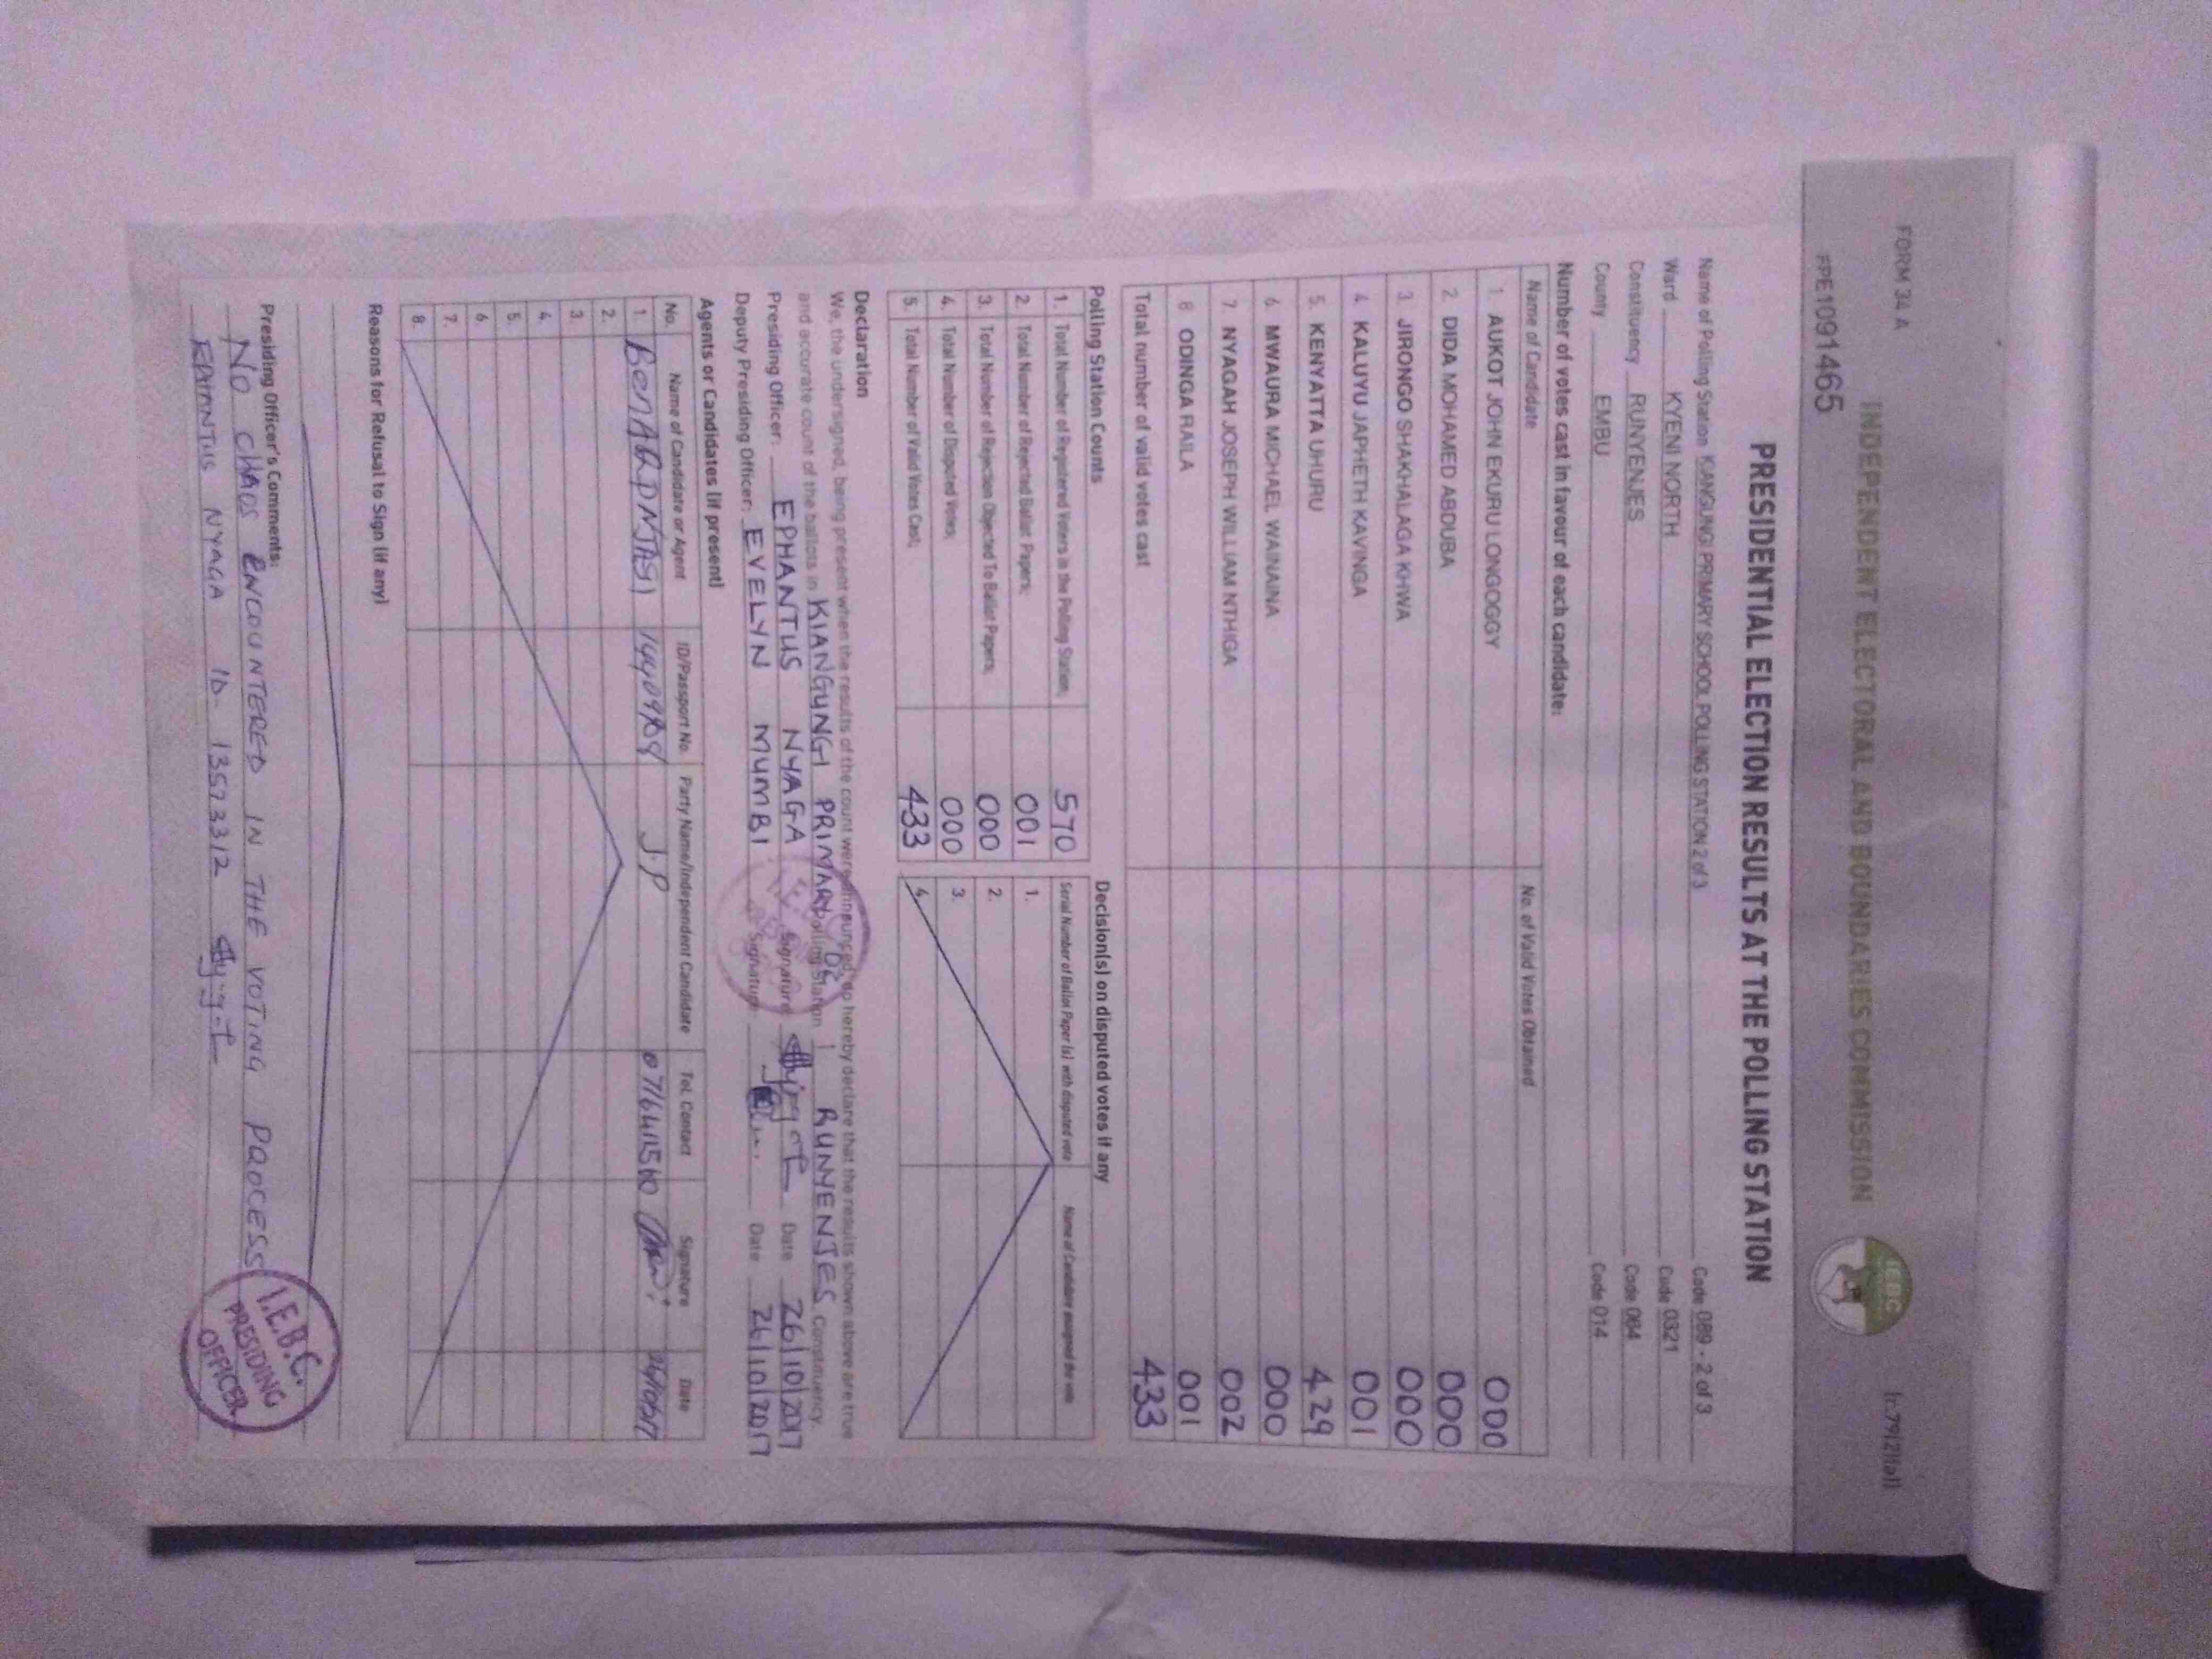 FORM 34 A
INDEPENDENT ELECTORAL AND BOUNDARIES COMMISSION
IEBC
#PE1091465
PRESIDENTIAL ELECTION RESULTS AT THE POLLING STATION
Name of Polling Station KIANGUNGI PRIMARY SCHOOL POLLING STATION 2 of 3 Code 089 - 2 of 3
Ward KYENI NORTH Code 0321
Constituency RUNYENJES Code 064
County EMBU Code 014
Number of votes cast in favour of each candidate:
Name of Candidate No. of Valid Votes Obtained
1. AUKOT JOHN EKURU LONGOGGY 000
2. DIDA MOHAMED ABDUBA 000
3. JIRONGO SHAKHALAGA KHWA 000
4. KALUYU JAPHETH KAVINGA 001
5. KENYATTA UHURU 429
6. MWAURA MICHAEL WAINAINA 000
7. NYAGAH JOSEPH WILLIAM NTHIGA 002
8 ODINGA RAILA 001
Total number of valid votes cast 433
Polling Station Counts
1. Total Number of Registered Voters in the Polling Station; 570
2. Total Number of Rejected Ballot Papers; 001
3. Total Number of Rejection Objected To Ballot Papers; 000
4. Total Number of Disputed Votes; 000
5. Total Number of Valid Votes Cast; 433
Decision(s) on disputed votes if any
Serial Number of Ballot Paper (s) with disputed vote Name of Candidate assigned the vote
1.
2.
3.
4.
Declaration
We, the undersigned, being present when the results of the count were announced, do hereby declare that the results shown above are true
and accurate count of the ballots in KIANGUNGI PRIMARY Polling Station RUNYENJES Constituency.
Presiding Officer: EPHANTUS NYAGA Signature Date 26/10/2017
Deputy Presiding Officer: EVELYN MUMBI Signature Date 26/10/2017
Agents or Candidates (if present)
No. Name of Candidate or Agent ID/Passport No. Party Name/Independent Candidate Tel. Contact Signature Date
1. BENARD NJAGI JP
2.
3.
4.
5.
6.
7.
8.
Reasons for Refusal to Sign (if any)
Presiding Officer's Comments:
NO CHAOS ENCOUNTERED IN THE VOTING PROCESS
EPHANTUS NYAGA ID 13573312
I.E.B.C.
PRESIDING
OFFICER